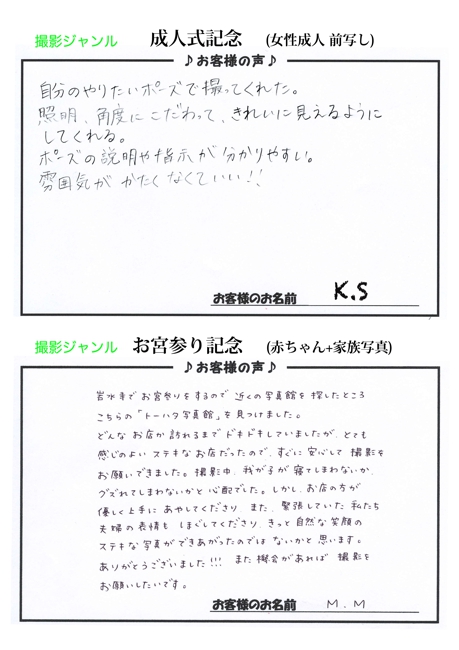 撮影ジャンル 成人式記念 (女性成人 前写し)
♪お客様の声♪
自分のやりたいポーズで撮ってくれた。
照明、角度にこだわって、きれいに見えるように
してくれる。
ポーズの説明や指示が分かりやすい。
雰囲気がかたくなくていい!!
お客様のお名前 K.S
撮影ジャンル お宮参り記念 (赤ちゃん+家族写真)
♪お客様の声♪
岩水寺でお宮参りをするので近くの写真館を探したところ
こちらの「トーハタ写真館」を見つけました。
どんなお店か訪れるまでドキドキしていましたが、とても
感じのよいステキなお店だったので、すぐに安心して撮影を
お願いできました。撮影中、我が子が寝てしまわないか、
グズれてしまわないかと心配でした。しかし、お店の方が
優しく上手にあやしてくださり、また、緊張していた私たち
夫婦の表情もほぐしてくださり、きっと自然な笑顔の
ステキな写真ができあがったのではないかと思います。
ありがとうございました!!! また機会があれば撮影を
お願いしたいです。
お客様のお名前 M.M